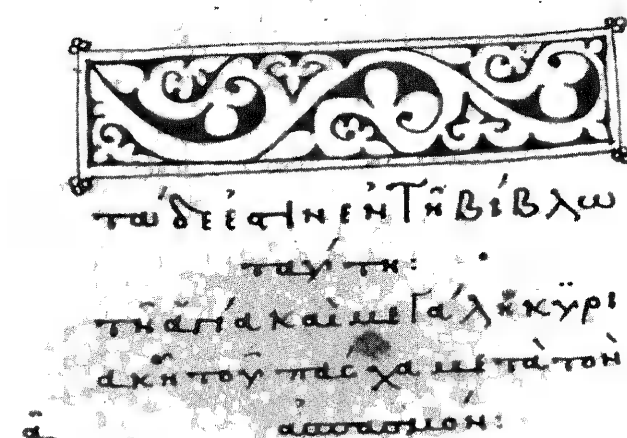 τάδε ἐστὶν ἐν τῆ βίβλω
ταύτη:
τῆ ἁγία καὶ μεγάλη κυρι
ακῆ τοῦ πάσχα μετὰ τὸν
ἀσπασμόν: